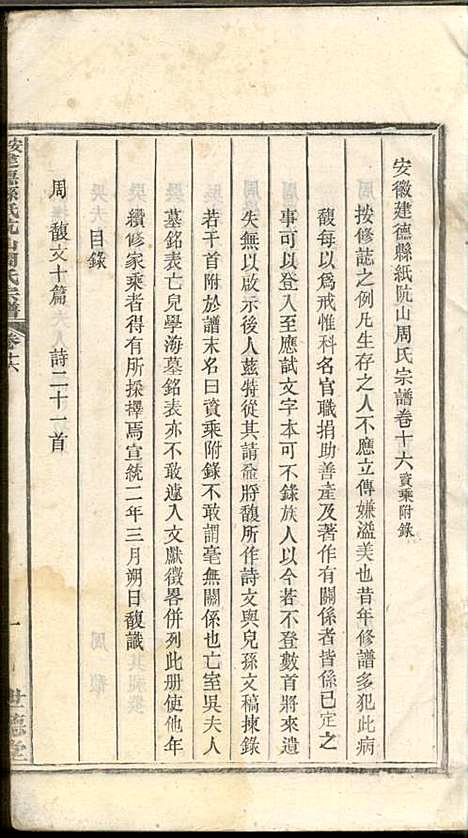 安徽建德縣紙阬山周氏宗譜卷十六 資乘附錄
按修誌之例凡生存之人不應立傳嫌溢美也昔年修譜多犯此病
馥每以爲戒惟科名官職捐助善產及著作有關係者皆係已定之
事可以登入至應試文字本可不錄族人以今若不登數首將來遺
失無以啟示後人茲特從其請僉將馥所作詩文與兒孫文稿揀錄
若干首附於譜末名曰資乘附錄不敢謂毫無關係也亡室吳夫人
墓銘表亡兒學海墓銘表亦不敢遽入文獻徵畧併列此册使他年
續修家乘者得有所採擇焉宣統二年三月朔日馥識
目錄
周馥文十篇 詩二十一首
安建德縣紙阬山周氏宗譜
卷十六
一
世德堂